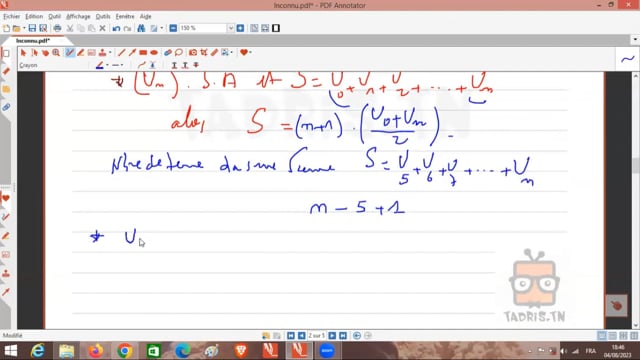 Inconnu.pdf* - PDF Annotator
Fichier Edition Affichage Insérer Document Outils Fenêtre Aide
150 %
Inconnu.pdf* x
Crayon
* (Un). S.A et S = U0 + U1 + U2 + .... + Un
alos S = (n+1) . (U0 + Un / 2)
TADRIS.TN
Nbre de terme das une Somme S = U5 + U6 + U7 + .... + Un
n - 5 + 1
* U
TADRIS.TN
Modifié
2 sur 5
FRA
18:46
04/08/2021